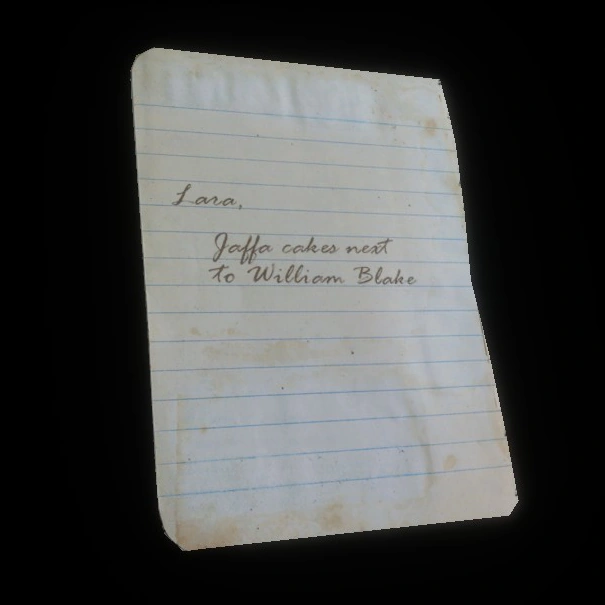 Lara,
Jaffa cakes next
to William Blake